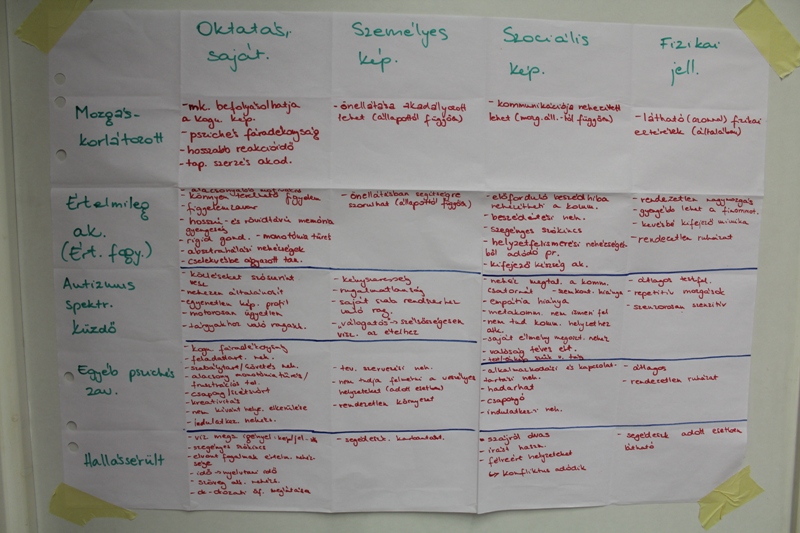 Oktatási
saját.
Személyes
kép.
Szociális
kép.
Fizikai
jell.
Mozgás-
korlátozott
- mk. befolyásolhatja
a kogn. kép.
- pszichés fáradékonyság
- hosszabb reakcióidő
- tap. szerzés akad.
- önellátása akadályozott
lehet (állapottól függően)
- kommunikációja nehezített
lehet (mozg. áll.-tól függően)
- látható (azonnal) fizikai
eltérések (általában)
Értelmileg
ak.
(Ért. fogy.)
- könnyen terelhető figyelem
- figyelemzavar
- hosszú- és rövidtávú memória
gyengeség
- rigid gond. - monotónia tűrés
- absztrahálási nehézségek
- cselekvésbe ágyazott tan.
- önellátásban segítségre
szorulhat (állapottól függően)
- előforduló beszédhiba
nehezítheti a komm.
- beszédértési neh.
- szegényes szókincs
- helyzetfelismerési nehézségek-
ből adódó pr.
- kifejező készség ak.
- rendezetlen nagymozgás
- gyengébb lehet a finommot.
- kevésbé kifejező mimika
- rendezetlen ruházat
Autizmus
spektr.
küzdő
- közléseket szószerint
vesz
- nehezen általánosít
- egyenetlen kép. profil
- motorosan ügyetlen
- tárgyakhoz való ragaszk.
- kényszeresség
- rugalmatlanság
- saját szab. rendszerhez
való rag.
- válogatós → szélsőségesen
visz. az ételhez
- nehéz megtal. a komm.
csatornát - szemkont. hiánya
- empátia hiánya
- metakomm. nem ismeri fel
- nem tud komm. helyzethez
alk.
- saját élmény megoszt. nehéz
- valóság téves ért.
- átlagos testfel.
- repetitív mozgások
- szenzorosan szenzitív
Egyéb pszichés
zav.
- kogn. fáradékonyság
- feladattart. neh.
- szabálytart/követés neh.
- alacsony monotónia tűrés/
frusztrációs tol.
- csapongó/szétszórt
- kreativitás
- nem kívánt helyz. elkerülése
- indulatkez. nehézs.
- tev. szervezési neh.
- nem tudja felmérni a veszélyes
helyzeteket (adott esetben)
- rendezetlen környezet
- alkalmazkodási és kapcsolat-
tartási neh.
- hadarhat
- csapongó
- indulatkez. neh.
- átlagos
- rendezetlen ruházat
Hallássérült
- szegényes szókincs
- elvont fogalmak értelm. nehéz-
sége
- idő → nyelvtani idő
- szöveg alk. nehézs.
- ok-okozati öf. meglátása
- segédeszk. karbantart.
- szájról olvas
- írást haszn.
- félreért helyzeteket
↳ konfliktus adódik
- segédeszk. adott esetben
látható